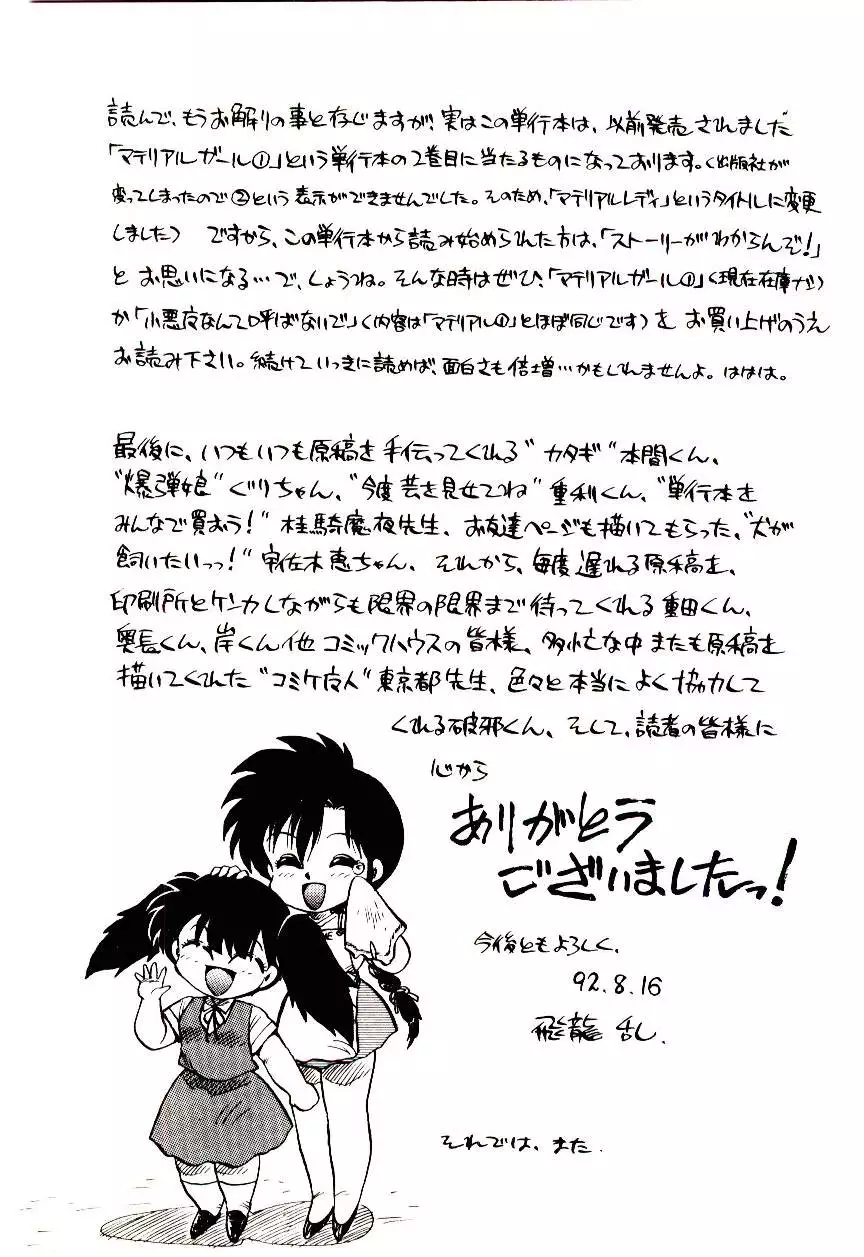 読んで、もうお解りの事と存じますが、実はこの単行本は、以前発売されました
「マテリアルガール①」という単行本の2巻目に当たるものになっております。(出版社が
変ってしまったので②という表示ができませんでした。そのため、「マテリアルレディ」というタイトルに変更
しました) ですから、この単行本から読み始められた方は、「ストーリーがわからんぞ!」
と お思いになる…で、しょうね。そんな時はぜひ、「マテリアルガール①」(現在在庫ナシ)
か「小悪夜なんて呼ばないで」(内容は「マテリアル①」とほぼ同じです)を お買い上げのうえ
お読み下さい。続けていっきに読めば、面白さも倍増…かもしれませんよ。ははは。
最後に、いつもいつも原稿を手伝ってくれる"カタギ"本間くん、
"爆弾娘"ぐりちゃん、"今度芸を見せてね"重利くん、"単行本を
みんなで買おう!"桂騎魔夜先生、お友達ページも描いてもらった、"犬が
飼いたいっっ!"宇佐木恵ちゃん、それから、毎度遅れる原稿を、
印刷所とケンカしながらも限界の限界まで待ってくれる重田くん、
奥長くん、岸くん他コミックハウスの皆様、多忙な中またも原稿を
描いてくれた"コミケ友人"東京都先生、色々と本当によく協力して
くれる破邪くん、そして、読者の皆様に
心から
ありがとう
ございましたっ!
今後ともよろしく。
92.8.16
飛龍 乱
それでは、また。